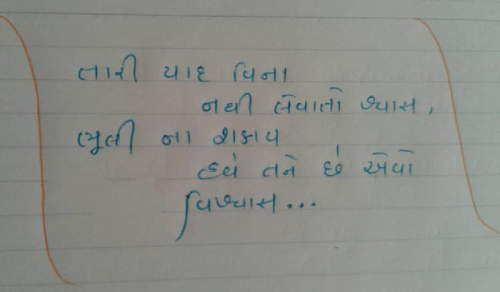 તારી યાદ વિના
નથી લેવાતો શ્વાસ,
ભૂલી ના શકાય
હવે તને છે એવો
વિશ્વાસ...